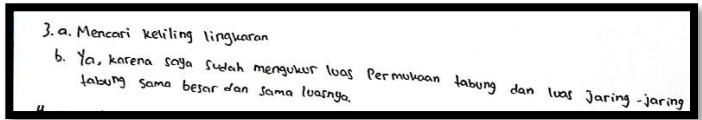 3. a. Mencari keliling lingkaran
b. Ya, karena saya sudah mengukur luas Permukaan tabung dan luas Jaring-jaring
tabung sama besar dan sama luasnya.